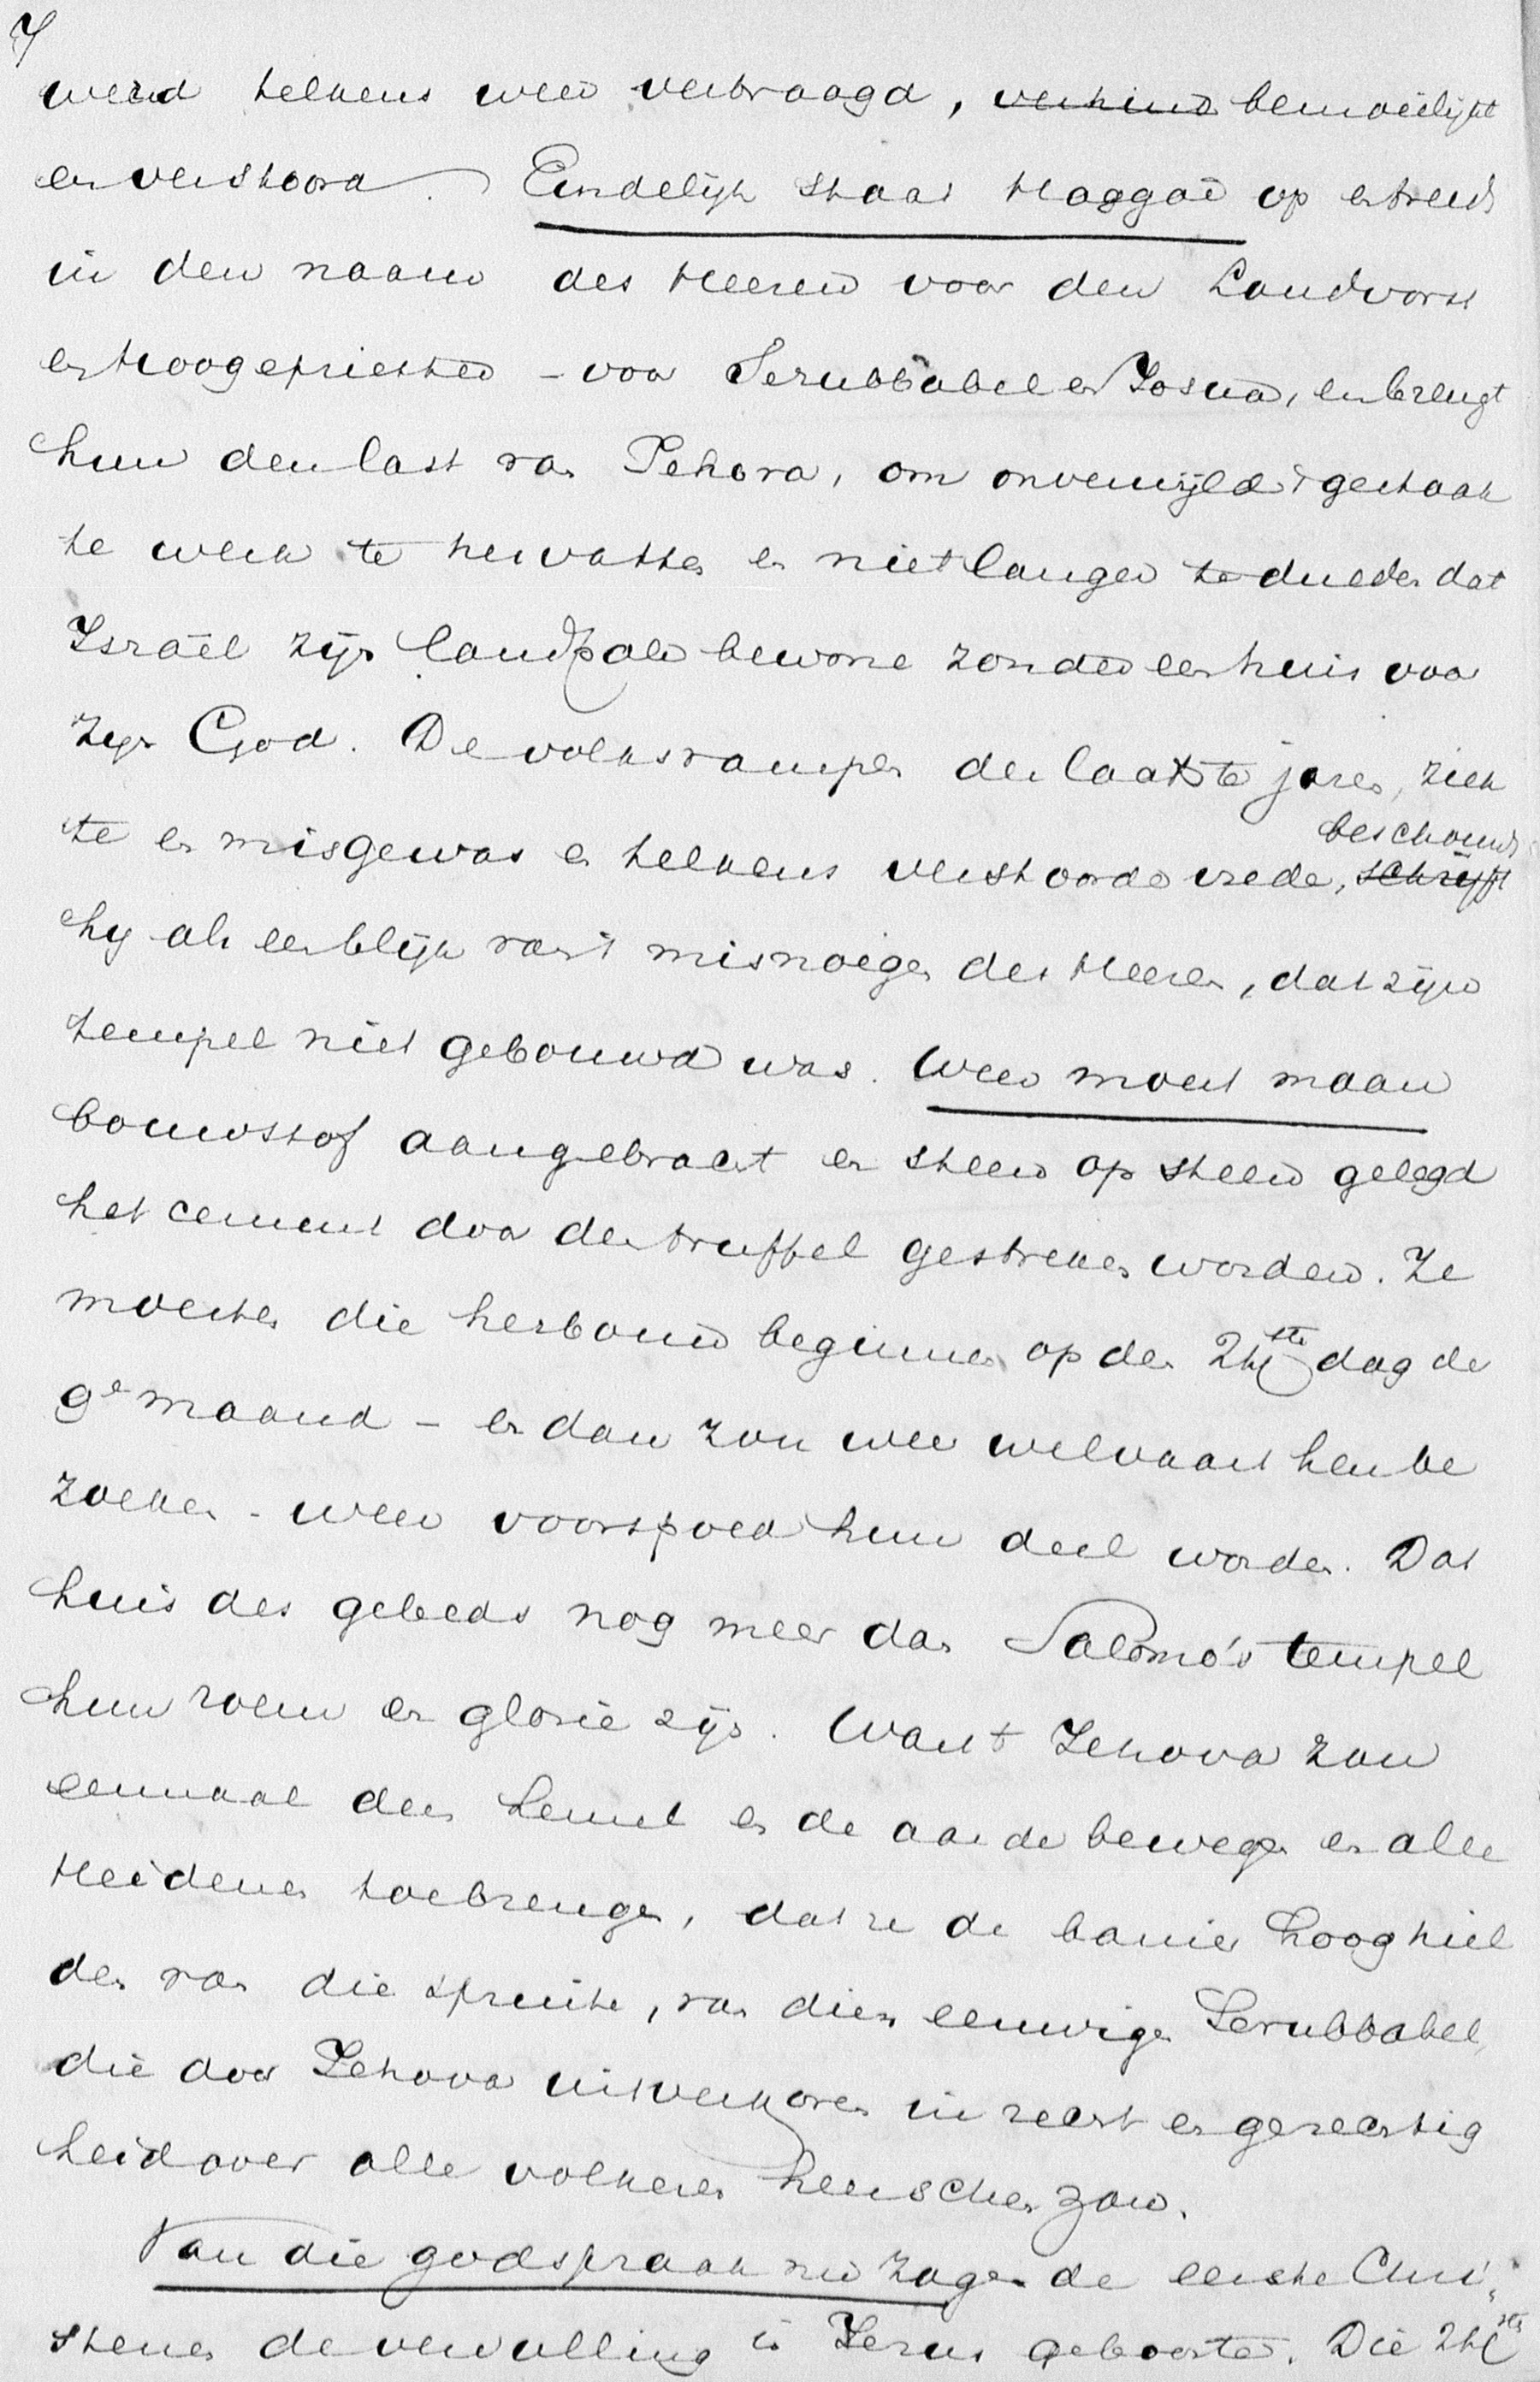 7
werd telkens weer vertraagd, verhind bemoeilijkt
en verstoord. Eindelijk staat Haggaï op en treedt
in den naam des Heeren voor den Landvorst
en Hoogepriester – voor Serubbabel en Josua, en brengt
hun den last van Jehova, om onverwijld 't gestaak
te werk te hervatten en niet langer te dulden dat
Israël zijn landpale bewone zonder een huis voor
zijn God. De volksrampen der laatste jaren, ziek
te en misgewas en telkens verstoorde vrede, schrijft
beschouwt
hij als een blijk van 't misnoegen des Heeren, dat zijn
tempel niet gebouwd was. Weer moest maar
bouwstof aangebracht en steen op steen gelegd
het cement door den truffel gestreken worden. Ze
moesten die herbouw beginnen op den 24ste dag der
9e maand – en dan zou weer welvaart hen be
zoeken – weer voorspoed hun deel worden. Dat
huis des gebeds nog meer dan Salomo's tempel
hun roem en glorie zijn. Want Jehova zou
eenmaal den hemel en de aarde bewegen en alle
Heidenen toebrengen, dat ze de banier hoog hiel
den van die spruite, van dien eeuwigen Serubbabel,
die door Jehova uitverkoren in recht en gerechtig
heid over alle volkeren heerschen zou.
Van die godspraak nu zagen de eerste Chri-
stenen de vervulling in Jezus geboorte. Die 24ste